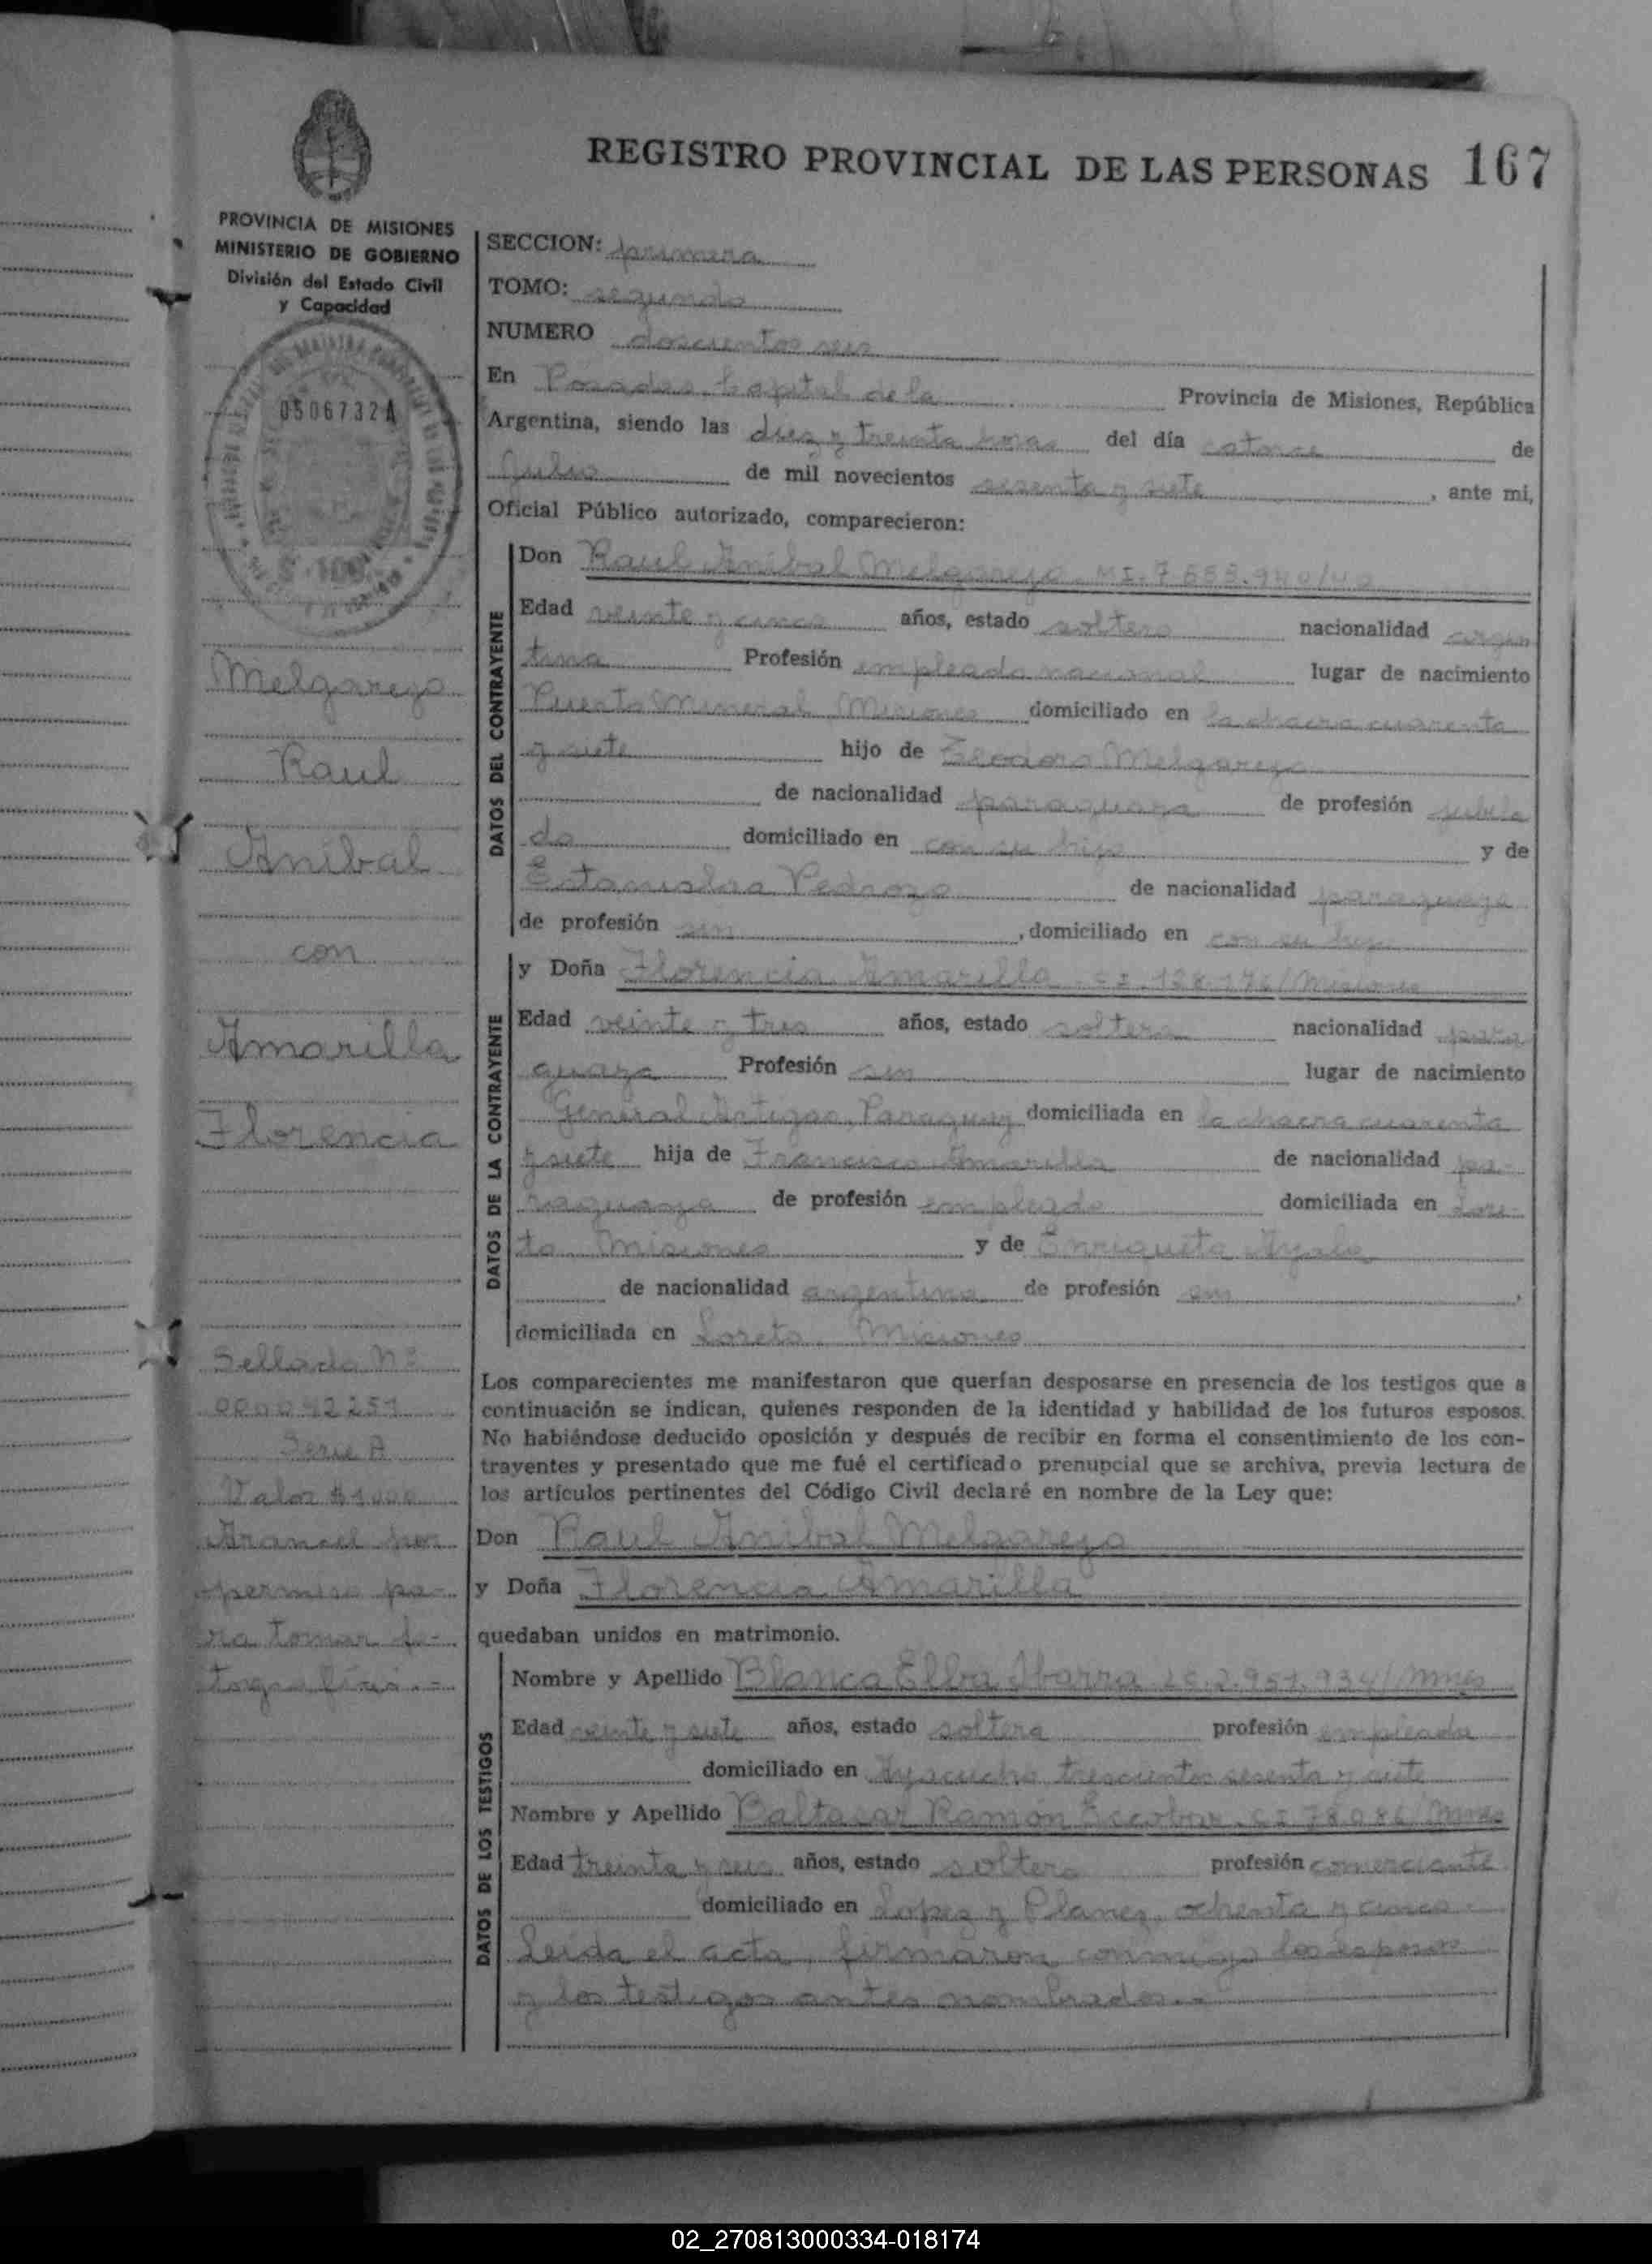 REGISTRO PROVINCIAL DE LAS PERSONAS 167
PROVINCIA DE MISIONES
MINISTERIO DE GOBIERNO
División del Estado Civil
y Capacidad
0506732A
Melgarejo
Raul
Aníbal
con
Amarilla
Florencia
Sellado Nº
Serie A
Valor $1000
Arancel por
permiso pa-
ra tomar fo-
SECCION: primera
TOMO: segundo
NUMERO doscientos seis
En Posadas Capital de la Provincia de Misiones, República
Argentina, siendo las diez y treinta horas del día catorce de
Julio de mil novecientos sesenta y siete, ante mi,
Oficial Público autorizado, comparecieron:
DATOS DEL CONTRAYENTE
Don Raul Aníbal Melgarejo M.I.
Edad veinte y cinco años, estado soltero nacionalidad argen
tina Profesión empleado nacional lugar de nacimiento
Puerto Mineral Misiones domiciliado en la chacra cuarenta
y siete hijo de Teodoro Melgarejo
de nacionalidad paraguaya de profesión jubila
do domiciliado en con su hijo y de
Estanislaa Pedrozo de nacionalidad paraguaya
de profesión sin, domiciliado en con su hijo
DATOS DE LA CONTRAYENTE
y Doña Florencia Amarilla C.I. /Misiones
Edad veinte y tres años, estado soltera nacionalidad para
guaya Profesión sin lugar de nacimiento
General Artigas, Paraguay domiciliada en la chacra cuarenta
y siete hija de Francisco Amarilla de nacionalidad pa-
raguaya de profesión empleado domiciliada en Lore-
to Misiones y de Enriqueta Ayala
de nacionalidad argentina de profesión sin,
domiciliada en Loreto Misiones
Los comparecientes me manifestaron que querían desposarse en presencia de los testigos que a
continuación se indican, quienes responden de la identidad y habilidad de los futuros esposos.
No habiéndose deducido oposición y después de recibir en forma el consentimiento de los con-
trayentes y presentado que me fué el certificado prenupcial que se archiva, previa lectura de
los artículos pertinentes del Código Civil declaré en nombre de la Ley que:
Don Raul Aníbal Melgarejo
y Doña Florencia Amarilla
quedaban unidos en matrimonio.
DATOS DE LOS TESTIGOS
Nombre y Apellido Blanca Elba Ibarra 2.951.934/Mnes
Edad veinte y siete años, estado soltera profesión empleada
domiciliado en Ayacucho trescientos sesenta y siete
Nombre y Apellido Baltasar Ramón Escobar C.I. 78.086/Mnes
Edad treinta y seis años, estado soltero profesión comerciante
domiciliado en Lopez y Planes, ochenta y cinco.
Leída el acta, firmaron conmigo los esposos
y los testigos antes nombrados.-
02_270813000334-018174